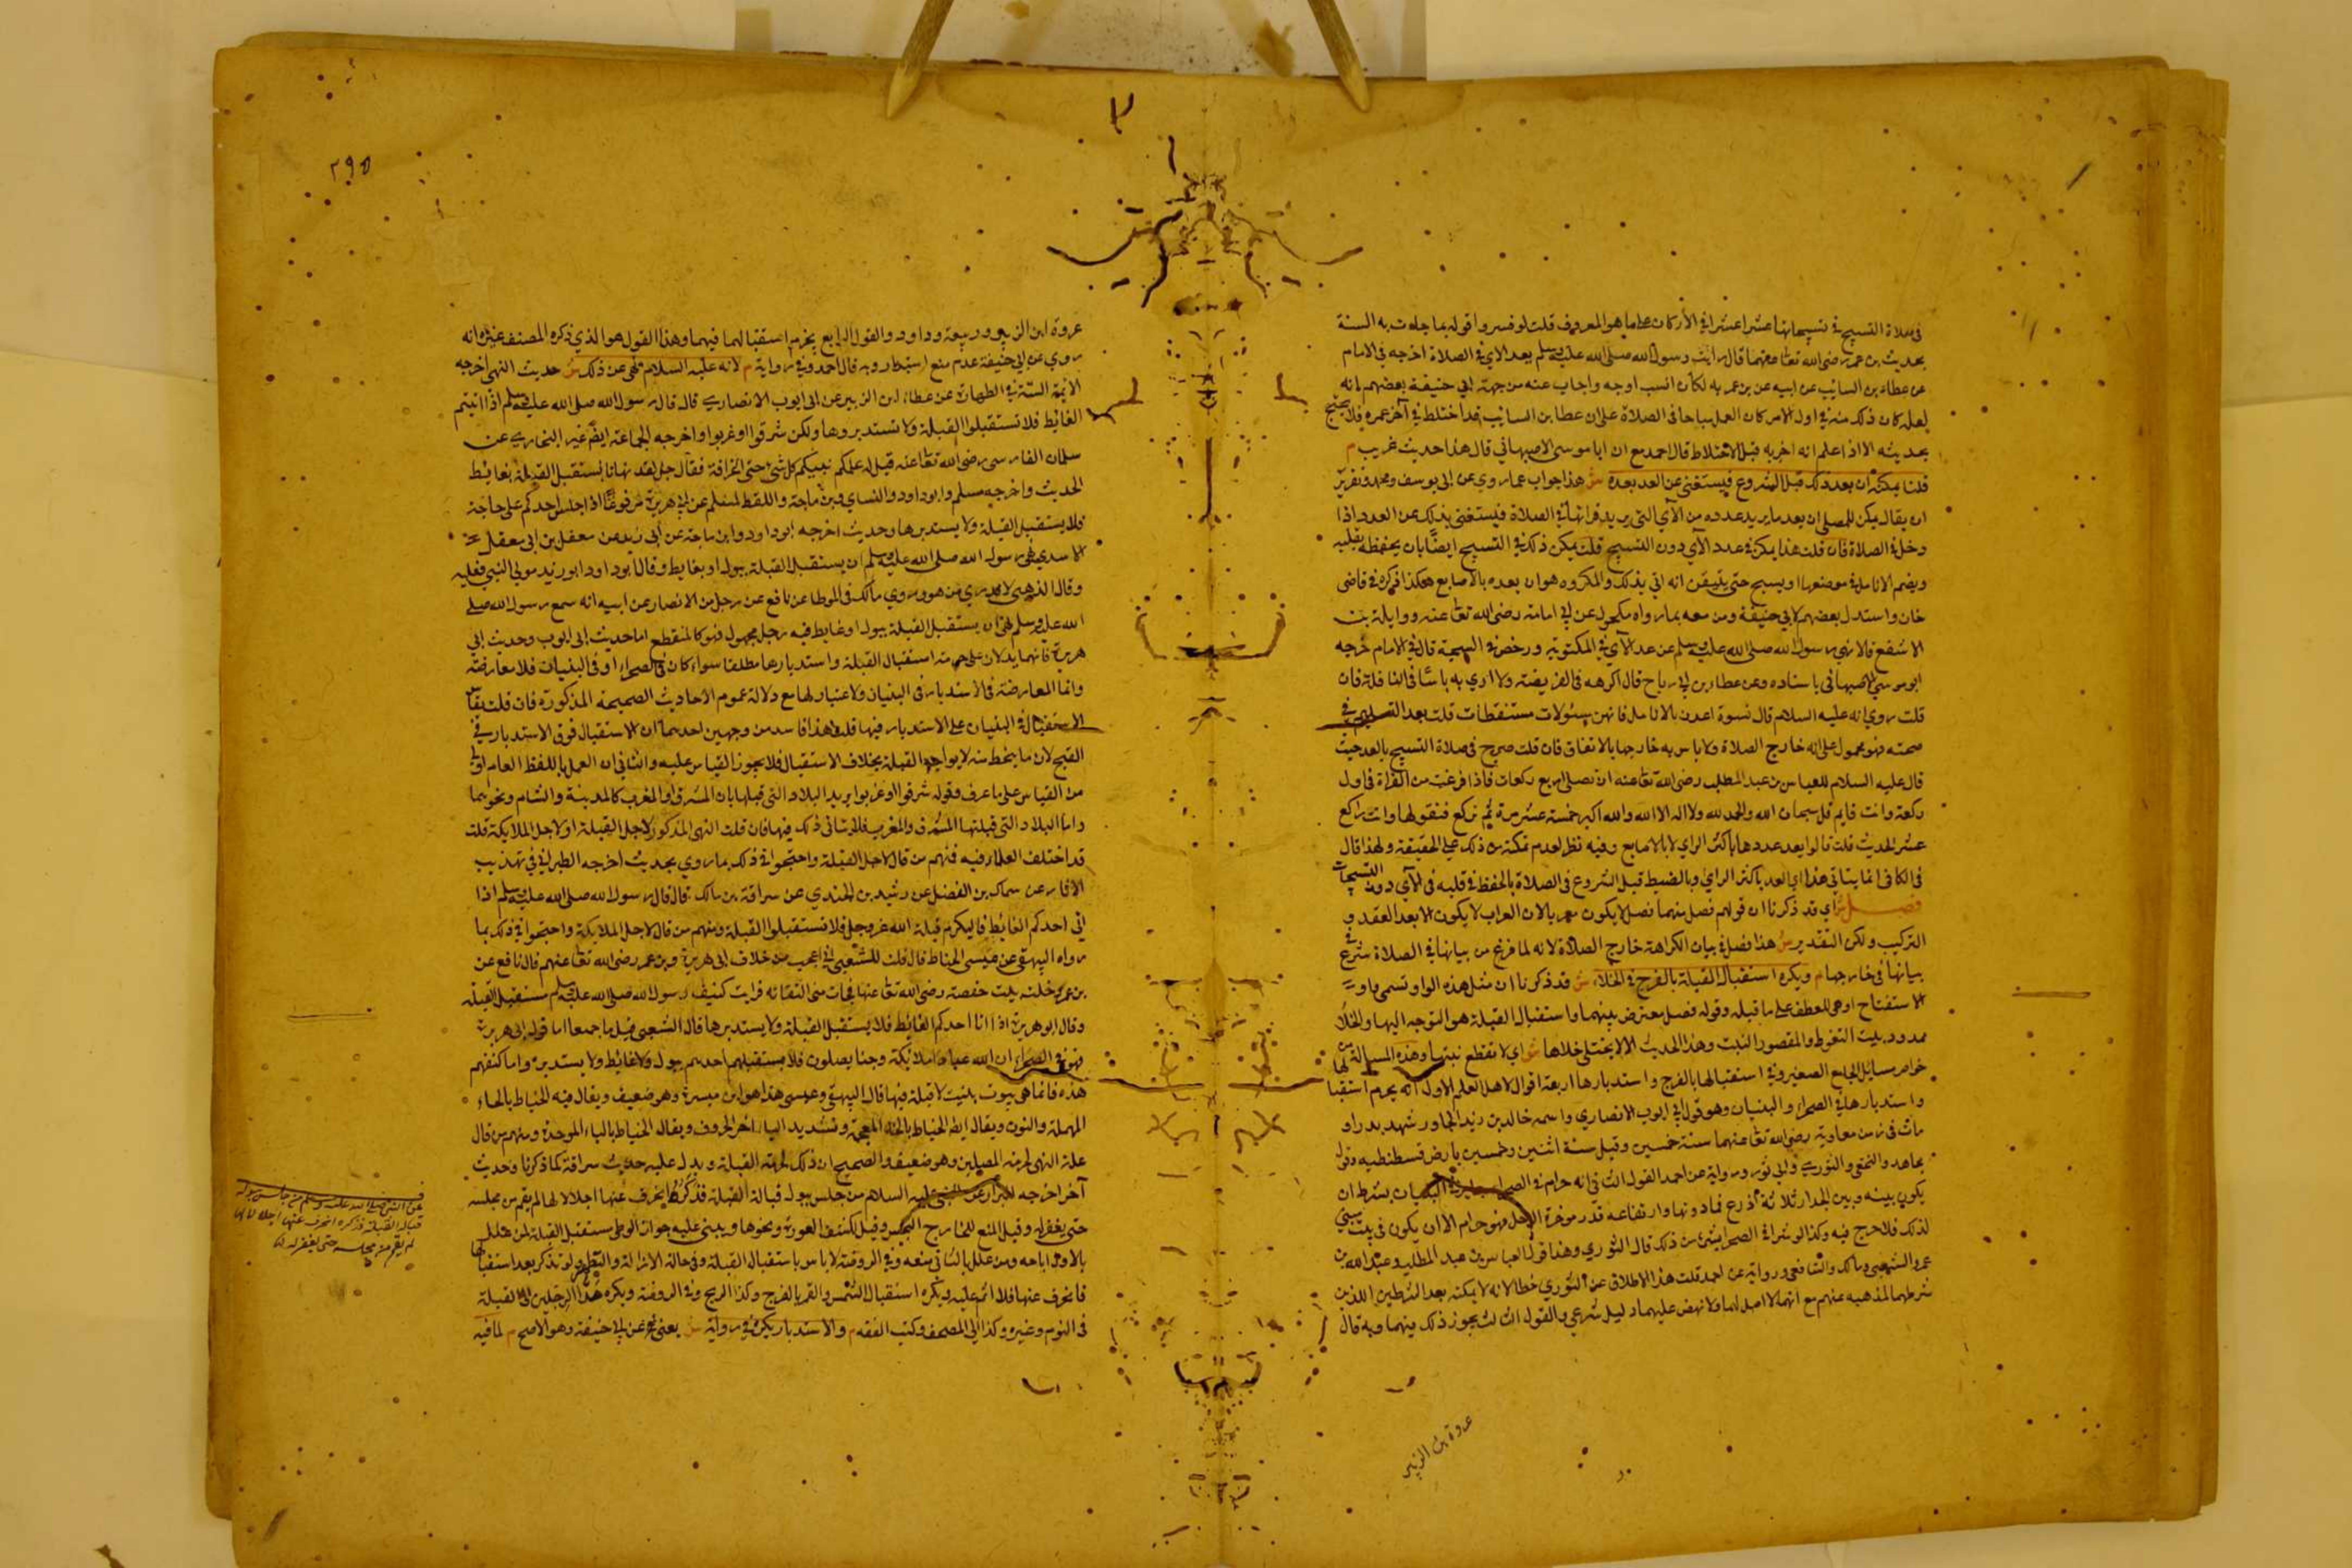 في صلاة التسبيح في تسبيحاتها عشرا عشرا في الأركان على ما هو المعروف قلت لو فسر واقوله بما جاءت به السنة
بحديث بن عمر رضى الله تعا عنهما قال رايت رسول الله صلى الله عليه وسلم يعد الاي في الصلاة اخرجه في الامام
عن عطاء بن السائب عن ابيه عن بن عمر به لكان انسب اوجه واجاب عنه من جهة ابي حنيفة بعضهم بانه
لعله كان ذلك منه في اول الامر كان العمل مباحا في الصلاة على ان عطا بن السائب قد اختلط في آخر عمره فلا يحتج
بحديثه الا اذا علم انه اخر به قبل الاختلاط قال احمد مع ان ابا موسى الاصبهاني قال هذا حديث غريب م
قلنا يمكنه ان يعد ذلك قبل الشروع فيستغنى عن العد بعده ش هذا جواب عما روي عن ابى يوسف ومحمد
ان يقال يمكن للمصلى ان يعد ما يريد عدده من الآي التي يريد قرائتها في الصلاة فيستغنى بذلك عن العدد اذا
دخل في الصلاة فان قلت هذا يمكن في عدد الآي دون التسبيح قلت يمكن ذلك في التسبيح ايضا بان يحفظه بقلبه
ويضم الانامل في موضعها او يسبح حتى يتيقن انه اتى بذلك والمكروه هو ان يعده بالاصابع هكذا ذكره في قاضى
خان واستدل بعضهم لابي حنيفة ومن معه بما رواه مكحول عن ابي امامة رضى الله تعا عنه وواثلة بن
الاسقع قالا نهى رسول الله صلى الله عليه وسلم عن عد الآي في المكتوبة ورخص في السبحة قال في الامام خرجه
ابو موسى الاصبهاني باسناده وعن عطاء بن ابي رباح قال اكرهه في الفريضة ولا ارى به باسا في النافلة فان
قلت روي انه عليه السلام قال نسوة اعدن بالانامل فانهن مسئولات مستنطقات قلت بعد التسليم في
صحته فهو محمول على انه خارج الصلاة ولا باس به خارجها بالاتفاق فان قلت صرح في صلاة التسبيح بالعد حيث
قال عليه السلام للعباس بن عبد المطلب رضى الله تعا عنه ان تصلى اربع ركعات فاذا فرغت من القراة في اول
ركعة وانت قايم قل سبحان الله والحمد لله ولا اله الا الله والله اكبر خمسة عشر مرة ثم تركع فتقولها وانت راكع
عشر الحديث قلت قالوا يعد عددها باكثر الراي لا بالاصابع وفيه نظر لعدم تمكنه من ذلك على الحقيقة ولهذا قال
في الكافي انما يتاتى هذا اي العد باكثر الراي وبالضبط قبل الشروع في الصلاة بالحفظ في قلبه في الآي دون التسبيحات
فصل ش اي قد ذكرنا ان قولهم فصل منهما فصل لا يكون معربا لان الاعراب لا يكون الا بعد العقد و
التركيب ولكن التقدير ش هذا فصل في بيان الكراهة خارج الصلاة لانه لما فرغ من بيانها في الصلاة شرع في
بيانها في خارجها م ويكره استقبال القبلة بالفرج في الخلاء ش قد ذكرنا ان مثل هذه الواو تسمى واو
الاستفتاح او هى للعطف على ما قبله وقوله فصل معترض بينهما واستقبال القبلة هو التوجه اليها والخلاء
ممدود بيت التغوط والمقصور النبت وهذا الحديث الا لا يختلى خلاها ش اي لا تقطع نبتها وهذه المسالة من
خواص مسائل الجامع الصغير وفي استقبالها بالفرج واستدبارها اربعة اقوال لاهل العلم الاول انه يحرم استقبالها
واستدبارها في الصحراء والبنيان وهو قول ابي ايوب الانصاري واسمه خالد بن زيد النجار شهد بدرا و
مات في زمن معاوية رضى الله تعا عنهما سنة خمسين وقيل سنة اثنين وخمسين بارض قسطنطينية وقول
مجاهد والنخعى والثوري وابي ثور ورواية عن احمد القول الثاني انه حرام في الصحراء جايز في البنيان بشرط ان
يكون بينه وبين الجدار ثلاثة اذرع فما دونها وارتفاعه قدر موخرة الرحل فهو حرام الا ان يكون في بيت بني
لذلك فلا حرج فيه وكذا لو ستر في الصحراء بشئ من ذلك قال الثوري وهذا قول العباس بن عبد المطلب وعبد الله بن
عمر والشعبى ومالك والشافعى ورواية عن احمد قلت هذا الاطلاق عن الثوري خطا لانه لا يمكنه بعد الشرطين اللذين
شرطهما لمذهبه عنهم مع انهما لا اصل لهما ولا نهض عليهما دليل شرعي والقول الثالث يجوز ذلك فيهما وبه قال
عروة بن الزبير
٢٩٥
عروة ابن الزبير وربيعة وداود والقول الرابع يحرم استقبالها فيهما وهذا القول هو الذي ذكره المصنف
روي عن ابي حنيفة عدم منع استدبار وبه قال احمد وفي رواية م لانه عليه السلام نهى عن ذلك ش حديث النهى اخرجه
الائمة الستة في الطهارة عن عطاء بن الزبير عن ابى ايوب الانصاري قال قال رسول الله صلى الله عليه وسلم اذا اتيتم
الغائط فلا تستقبلوا القبلة ولا تستدبروها ولكن شرقوا او غربوا واخرجه الجماعة ايضا غير البخاري عن
سلمان الفارسى رضى الله تعا عنه قيل له علمكم نبيكم كل شئ حتى الخراة فقال اجل لقد نهانا ان نستقبل القبلة بغائط
الحديث واخرجه مسلم وابو داود والنساي وبن ماجة واللفظ لمسلم عن ابي هريرة مرفوعا اذا جلس احدكم على حاجته
فلا يستقبل القبلة ولا يستدبرها وحديث اخرجه ابو داود وابن ماجة عن ابي زيد عن معقل بن ابى معقل
الاسدي نهى رسول الله صلى الله عليه وسلم ان يستقبل القبلة ببول او بغايط وقال ابو داود ابو زيد مولى
وقال الذهبى لا يدرى من هو وروي مالك في الموطا عن نافع عن رجل من الانصار عن ابيه انه سمع رسول الله صلى
الله عليه وسلم نهى ان يستقبل القبلة ببول او غايط فيه رجل مجهول فهو كالمنقطع اما حديث ابى ايوب وحديث ابي
هريرة فانهما يدلان على حرمة استقبال القبلة واستدبارها مطلقا سواء كان في الصحراء او في البنيان فلا معارضة
وانما المعارضة في الاستدبار في البنيان ولا اعتبار لها مع دلالة عموم الاحاديث الصحيحة المذكورة فان قلت يقاس
الاستقبال في البنيان على الاستدبار فيها قلت هذا فاسد من وجهين احدهما ان الاستقبال فوق الاستدبار في
القبح لان ما ينحط منه لا يواجه القبلة بخلاف الاستقبال فلا يجوز القياس عليه والثاني ان العمل باللفظ العام اولى
من القياس على ما عرف وقوله شرقوا او غربوا يريد البلاد التى قبلتها بان المشرق او المغرب كالمدينة والشام ونحوهما
واما البلاد التى قبلتها المشرق والمغرب فلا يتاتى ذلك فيها فان قلت النهى المذكور لاجل القبلة او لاجل الملايكة قلت
قد اختلف العلماء فيه فمنهم من قال لاجل القبلة واحتجوا في ذلك بما روي بحديث اخرجه الطبراني في تهذيب
الاثار عن سماك بن الفضل عن رشيد بن الجندي عن سراقة بن مالك قال قال رسول الله صلى الله عليه وسلم اذا
اتى احدكم الغائط فاليكرم قبلة الله عز وجل فلا تستقبلوا القبلة ومنهم من قال لاجل الملايكة واحتجوا في ذلك بما
رواه البيهقى عن عيسى الحناط قال قلت للشعبى اني اعجب من خلاف ابى هريرة وبن عمر رضى الله تعا عنهم قال نافع عن
بن عمر دخلت بيت حفصة رضى الله تعا عنها فحانت منى التفاتة فرايت كنيف رسول الله صلى الله عليه وسلم مستقبل القبلة
وقال ابو هريرة اذا اتا احدكم الغايط فلا يستقبل القبلة ولا يستدبرها قال الشعبى قيل ما جمعا اما قول ابى هريرة
فهو في الصحراء ان الله عبادا ملائكة وجنا يصلون فلا يستقبلهم احدهم ببول ولا غائط ولا يستدبره واما كنفهم
هذه فانما هى بيوت بنيت لا قبلة فيها قال البيهقى وعيسى هذا هو ابن ميسرة وهو ضعيف ويقال فيه الحناط بالحاء
المهملة والنون ويقال ايضا الخياط بالخاء المعجمة وتشديد الياء اخر الحروف ويقال الخباط بالباء الموحدة ومنهم من قال
علة النهى لحرمة المصلين وهو ضعيف والصحيح ان ذلك لجهة القبلة ويدل عليه حديث سراقة كما ذكرنا وحديث
آخر اخرجه البزار عن النبى عليه السلام من جلس ببول قبالة القبلة فذكر فانحرف عنها اجلالا لها لم يقم من مجلسه
حتى يغفر له وقيل المنع للخارج النجس وقيل لكشف العورة ونحوها ويبنى عليه جواز الوطى مستقبل القبلة لمن علل
بالاول اباحه ومن علل بالثاني منعه وفي الروضة لا باس باستقبال القبلة وفي حالة الازالة والتطهر ولو تذكر بعد استقبالها
فانحرف عنها فلا اثم عليه ويكره استقبال الشمس والقمر بالفرج وكذا الريح وفي الروضة ويكره مد الرجلين الى القبلة
في النوم وغيره وكذا الى المصحف وكتب الفقه م والاستدبار يكره في رواية ش يعنى عن ابي حنيفة وهو الاصح م لما فيه
عن النبى صلى الله عليه وسلم من جلس ببول
قبالة القبلة فذكره انحرف عنها اجلالا لها
لم يقم من مجلسه حتى يغفر له